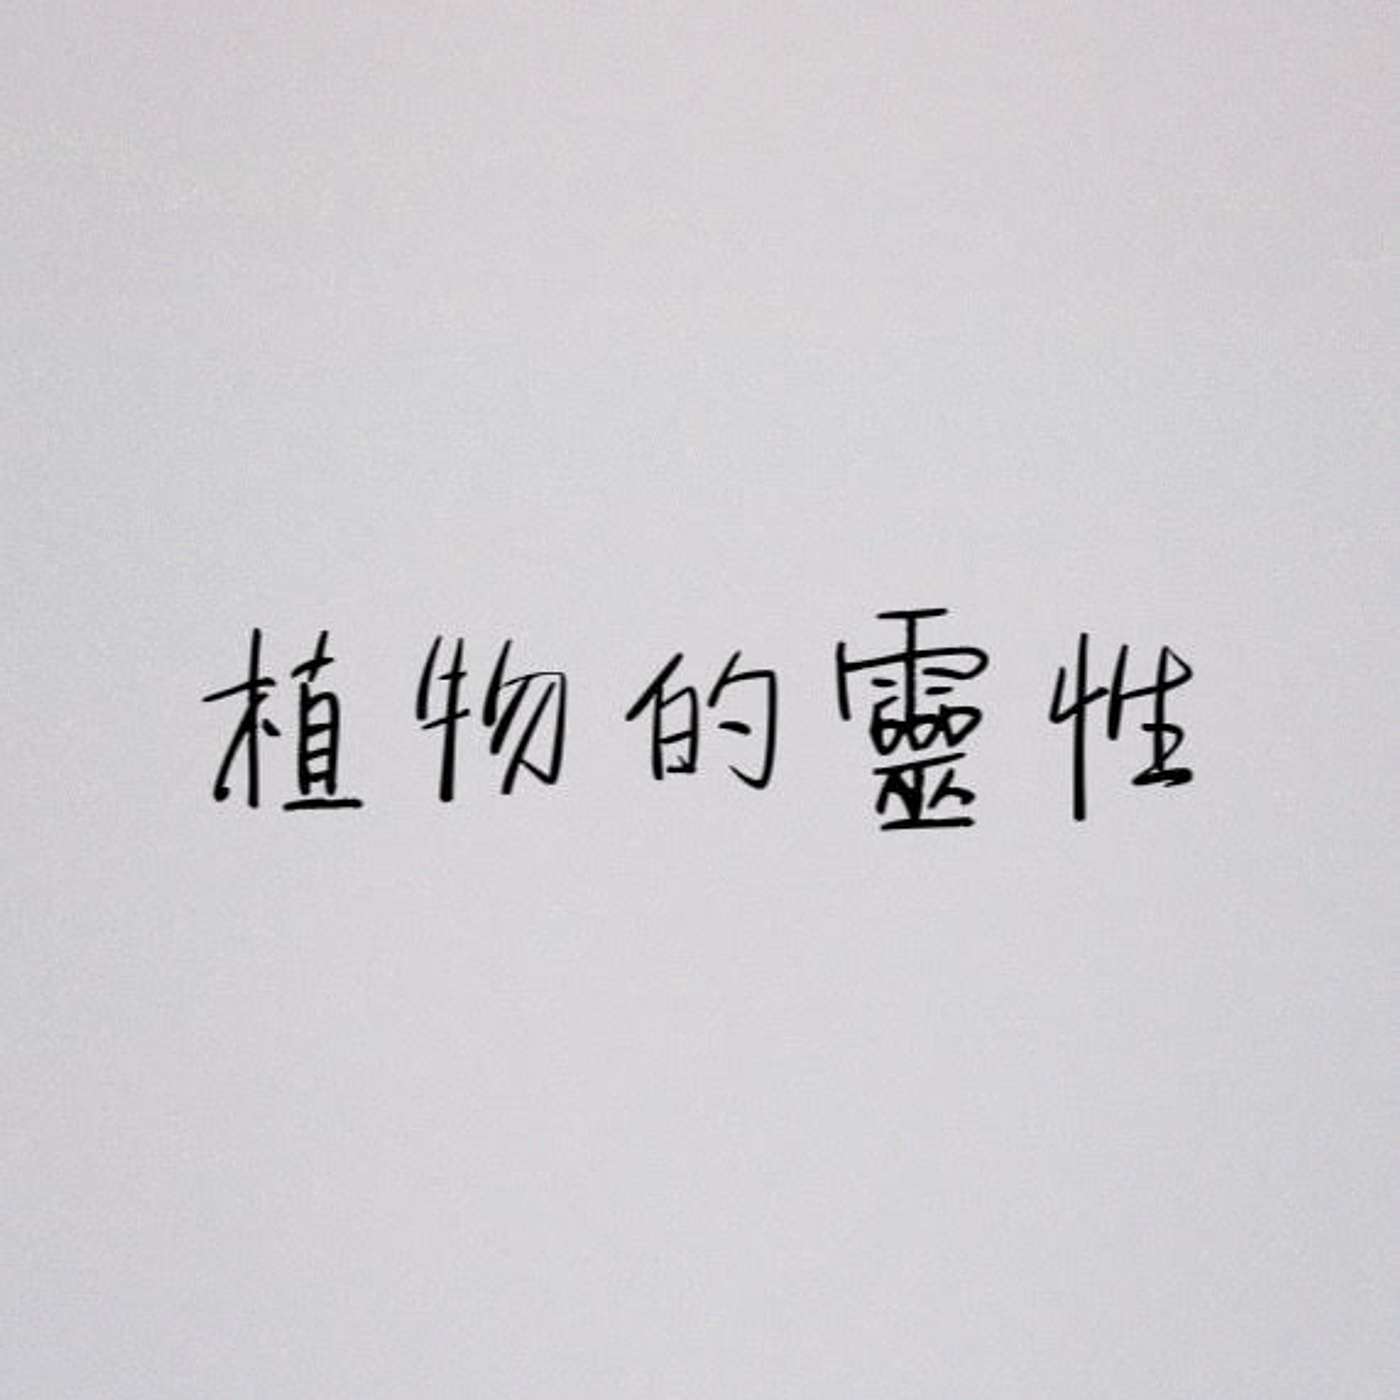 植物的靈性